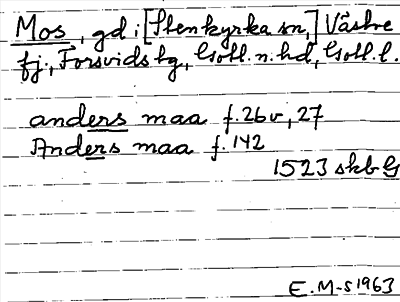 Mos, gd i [Stenkyrka sn,] Västre
fj., Forsvids tg, Gotl. n. hd, Gotl. l.
anders maa f. 26v, 27
Anders maa f. 142
1523 skb G
E.M-S 1963